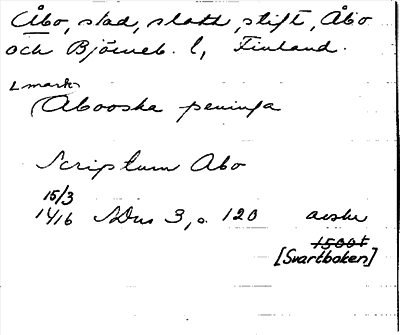 Åbo, stad, slott, stift, Åbo
och Björneb. l, Finland.
L mark
(Abooska peninga
Scriptum Abo
15/3
1416 ADus 3, s. 120 avskr
1500t
[Svartboken]